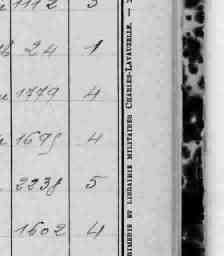 1112 3
24 1
1779 4
1695 4
2238 5
1602 4
RIMERIE ET LIBRAIRIE MILITAIRES CHARLES-LAVAUZELLE. —